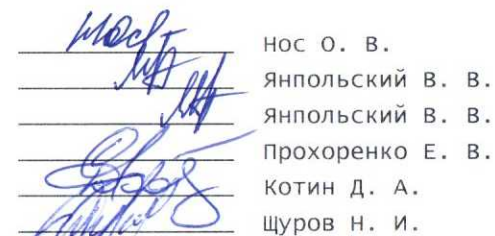 Нос О. В.
Янпольский В. В.
Янпольский В. В.
Прохоренко Е. В.
Котин Д. А.
Щуров Н. И.